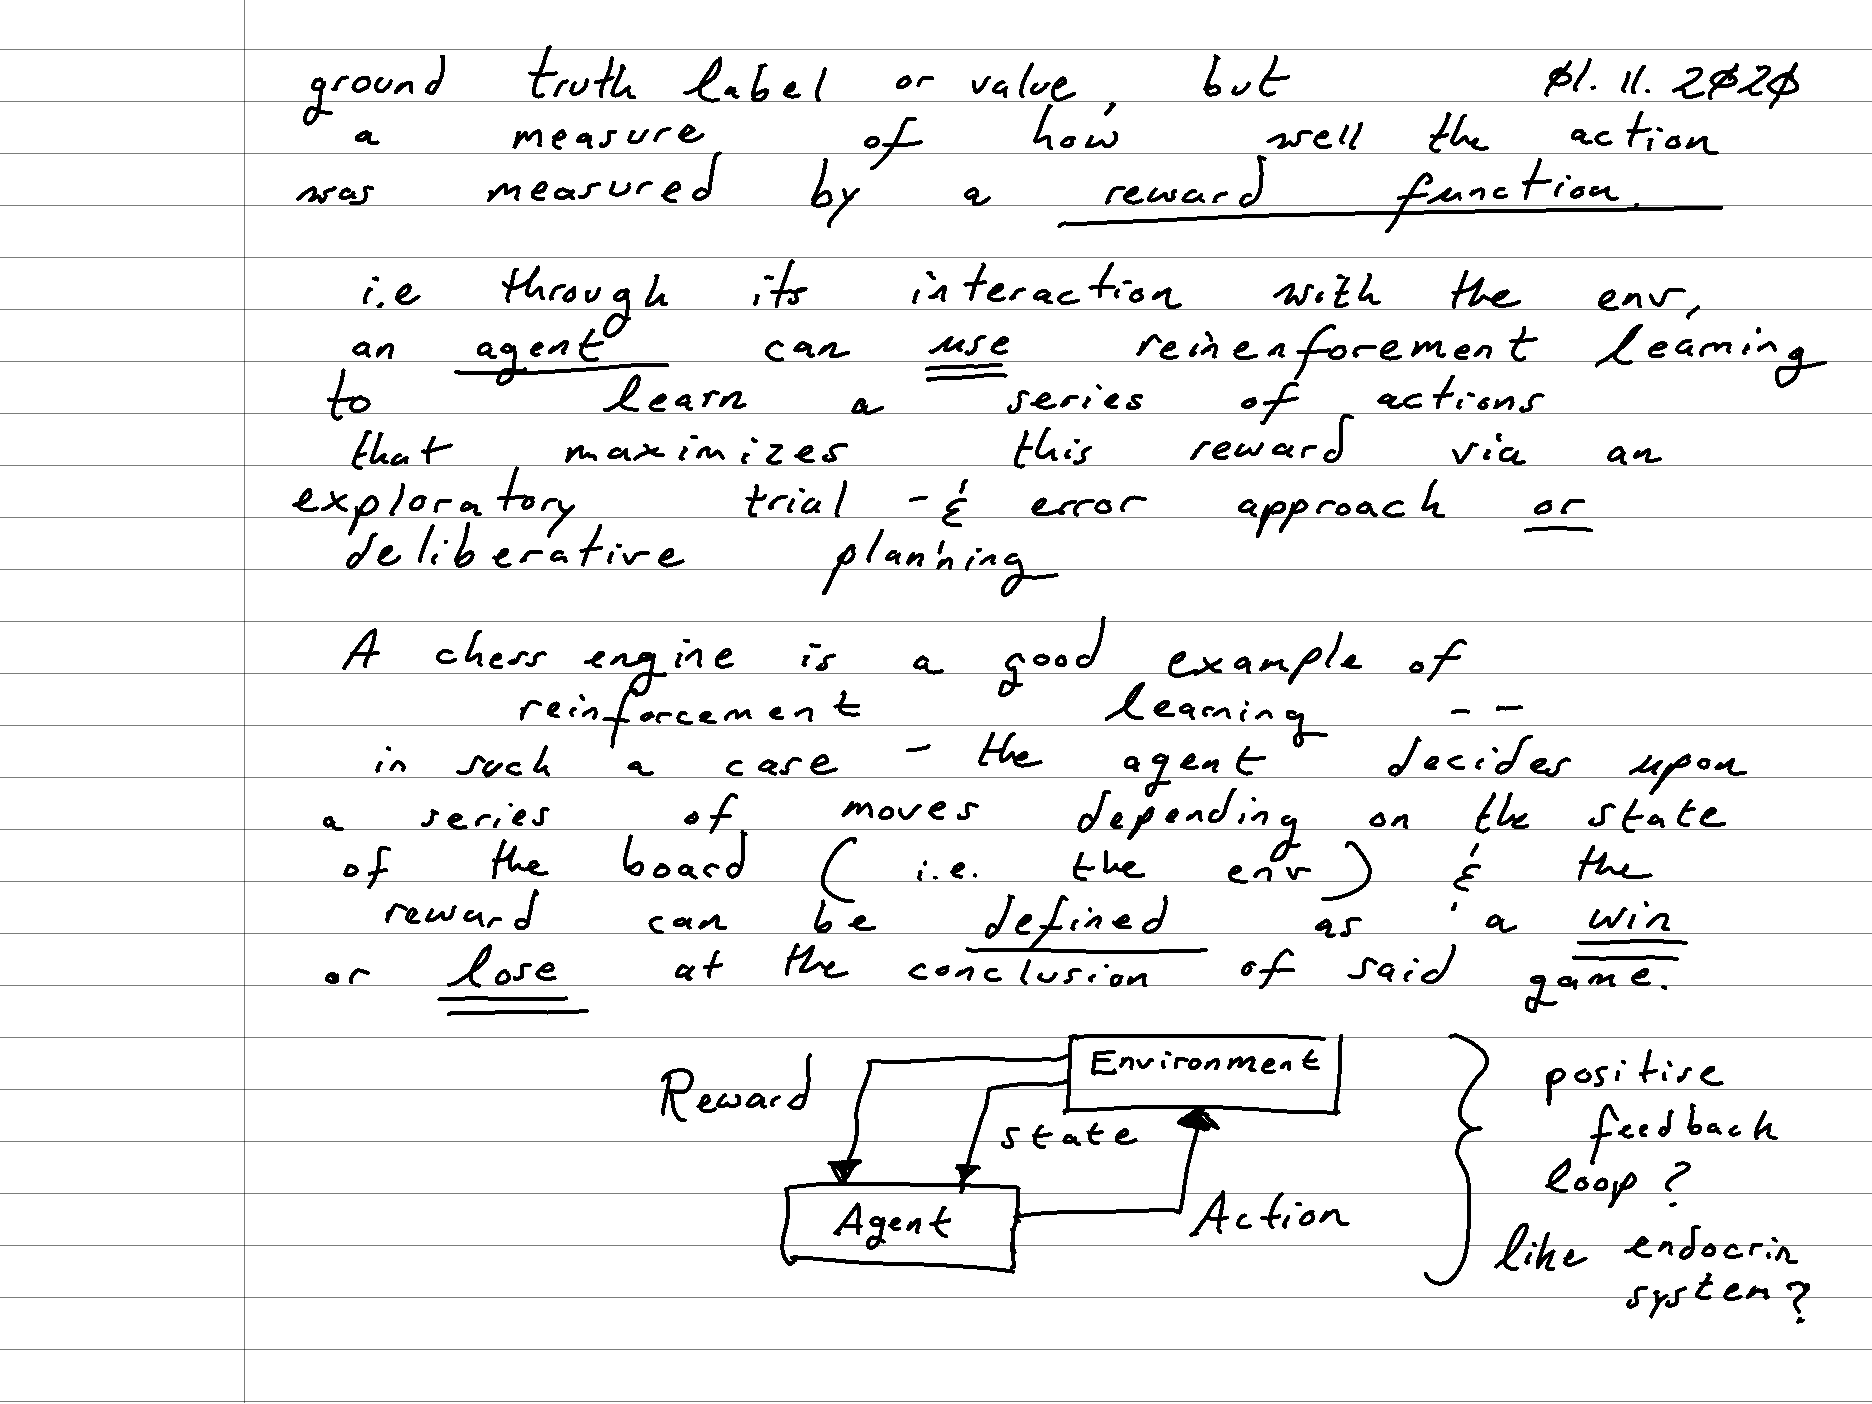 ground truth label or value, but 01.11.2020
a measure of how well the action
was measured by a reward function.
i.e through its interaction with the env,
an agent can use reinenforement learning
to learn a series of actions
that maximizes this reward via an
exploratory trial -& error approach or
deliberative planning
A chess engine is a good example of
reinforcement learning --
in such a case - the agent decides upon
a series of moves depending on the state
of the board (i.e. the env) & the
reward can be defined as a win
or lose at the conclusion of said game.
Environment
Reward
state
Agent
Action
positive
feedback
loop?
like endocrin
system?